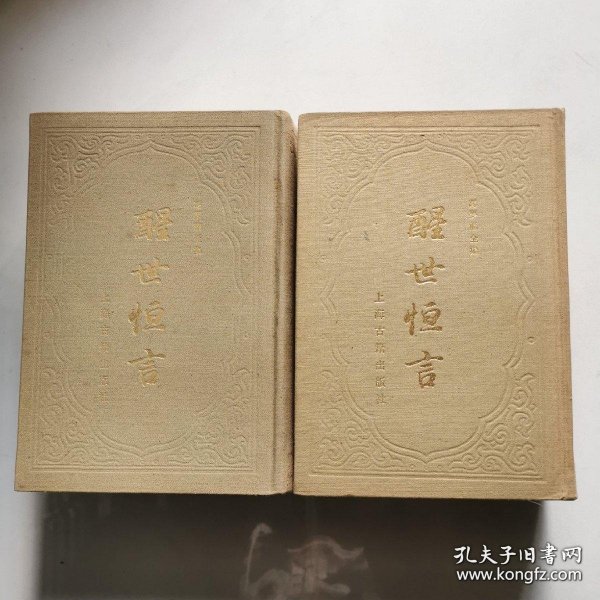 醒世恒言
上海古籍出版社
醒世恒言
上海古籍出版社
孔夫子旧书网
www.kongfz.com